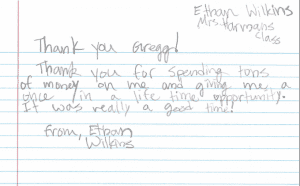 Ethan Wilkins
Mrs. Harmans
class
Thank you Gregg!
Thank you for spending tons
of money on me and giving me a
once in a life time opportunity.
It was really a good time!
from, Ethan
Wilkins